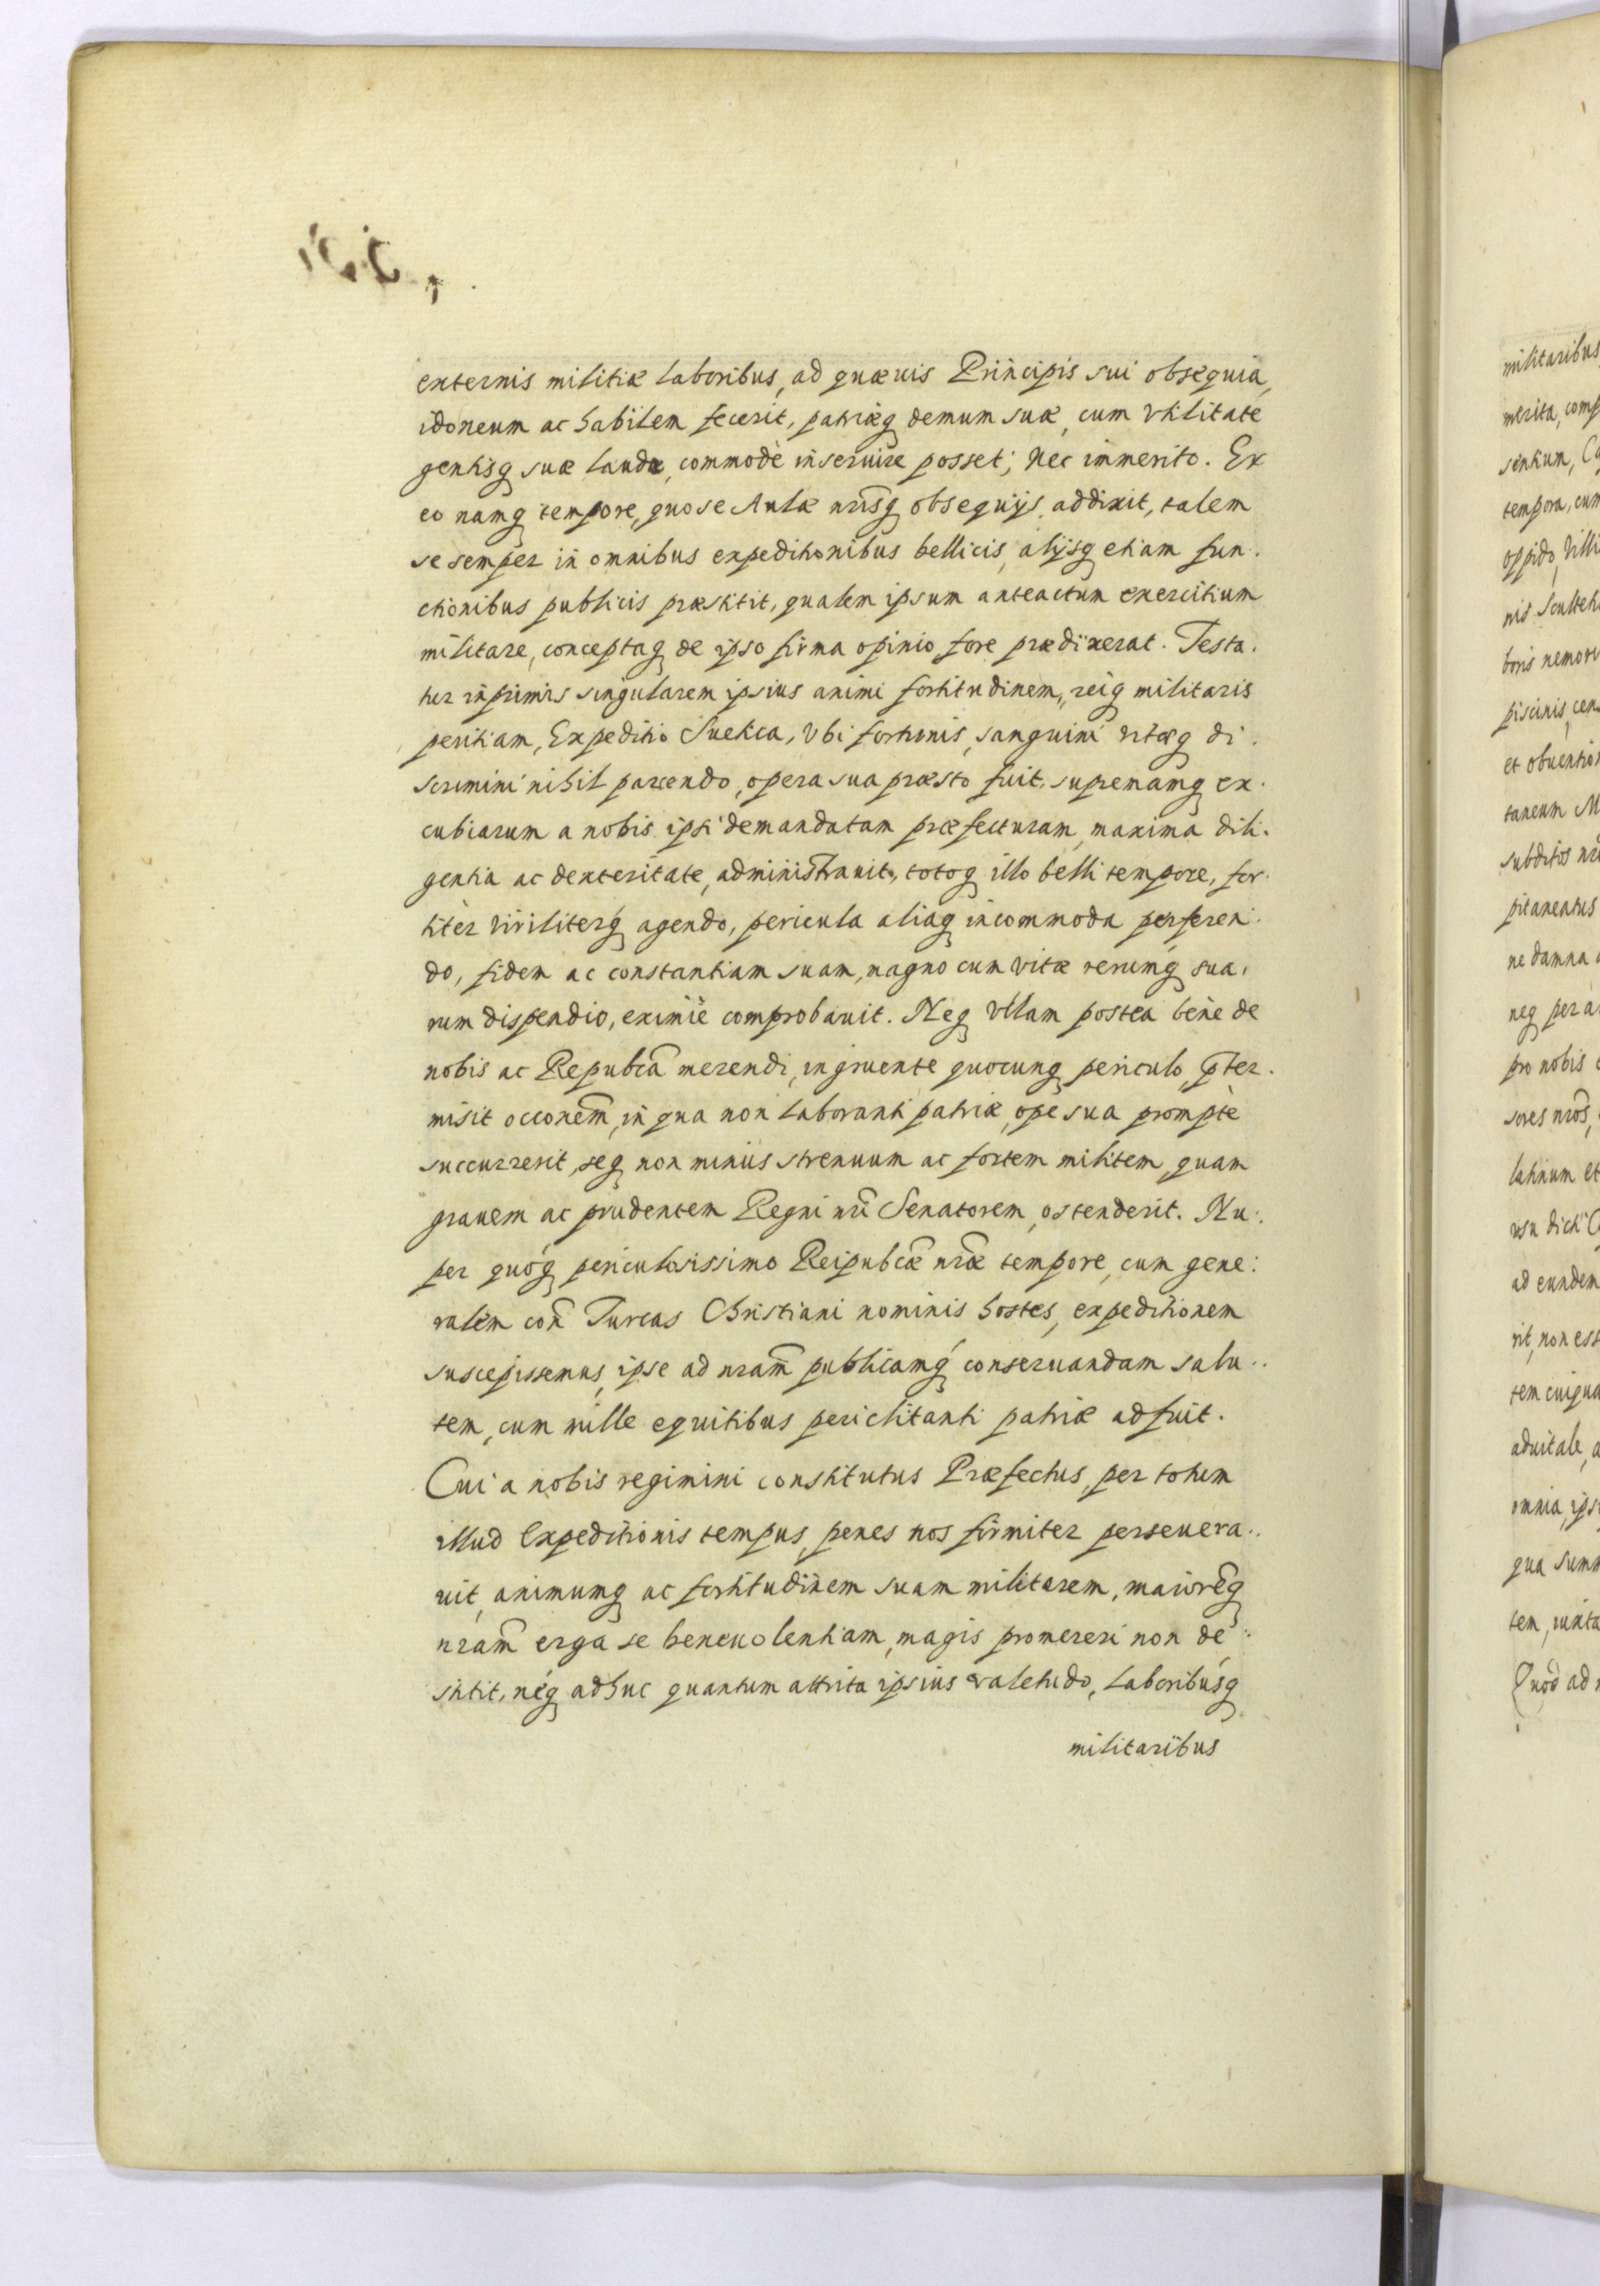 externis militiæ laboribus, ad quæuis Principis sui obsequia,
idoneum ac habilem fecerit, patriæq demum suæ, cum vtilitate
gentisq suæ laude, commodè inseruire posset; nec immerito. Ex
eo namq tempore, quo se Aulæ nrisq obsequijs addixit, talem
se semper in omnibus expeditionibus bellicis, alijsq etiam fun.
ctionibus publicis præstitit, qualem ipsum anteactum exercitium
militare, conceptaq de ipso firma opinio fore prædixerat. Testa.
tur inprimis singularem ipsius animi fortitudinem, reiq militaris
peritiam, Expeditio Suetica, vbi fortunis, sanguini vitæq di.
scrimini nihil parcendo, opera sua præsto fuit, supremamq ex.
cubiarum a nobis ipsi demandatam præfecturam, maxima dili.
gentia ac dexteritate, administrauit, totoq illo belli tempore, for.
titèr viriliterq agendo, pericula aliaq incommoda perferen.
do, fidem ac constantiam suam, magno cum vitæ rerumq sua.
rum dispendio, eximiè comprobauit. Neq vllam postea benè de
nobis ac Repubca merendi, ingruente quocunq periculo, pter.
misit occonem, in qua non laboranti patriæ, ope sua promptè
succurrerit, seq non minùs strenuum ac fortem militem, quam
grauem ac prudentem Regni nri Senatorem, ostenderit. Nu.
per quoq periculosissimo Reipubcæ nræ tempore, cum gene:
ralem con Turcas Christiani nominis hostes, expeditionem
suscepissemus, ipse ad nram publicamq conseruandam salu..
tem, cum mille equitibus periclitanti patriæ adfuit.
Cui a nobis regimini constitutus Præfectus, per totum
illud Expeditionis tempus, penes nos firmiter perseuera..
uit, animumq ac fortitudinem suam militarem, maioreq
nram erga se beneuolentiam, magis promereri non de..
stitit, neq adhuc quantum attrita ipsius valetudo, laboribusq
militaribus
militaribus
merita, comp
tempora, cum
oppido, Villi
boris nemori
piscinis, cens
et obuention
taneum M
subditos nr
pitaneatus
ne damna
neq per a
pro nobis
sores nros,
latinum et
ad eundem
rit, non ess
tem cuiqua
omnia, ips
qua summ
tem, iuxta
Quod ad